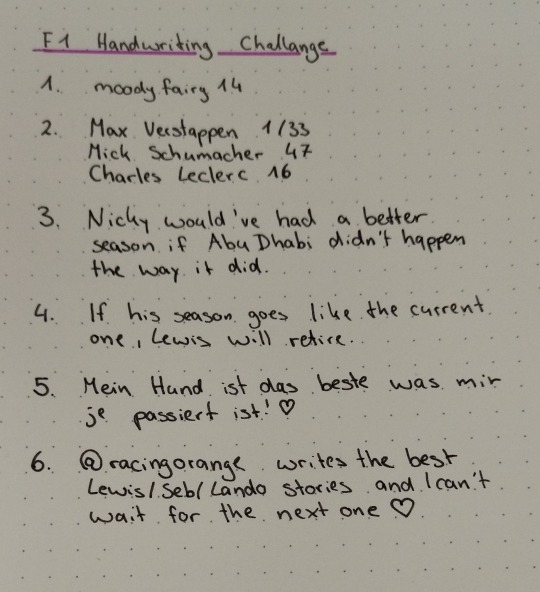 F1 Handwriting Challange
1. moodyfairy 14
2. Max Verstappen 1/33
Mick Schumacher 47
Charles Leclerc 16
3. Nicky would've had a better
season if Abu Dhabi didn't happen
the way it did.
4. If his season goes like the current
one, Lewis will retire.
5. Mein Hund ist das beste was mir
je passiert ist! ♡
6. @racingorange writes the best
Lewis/Seb/Lando stories and I can't
wait for the next one ♡